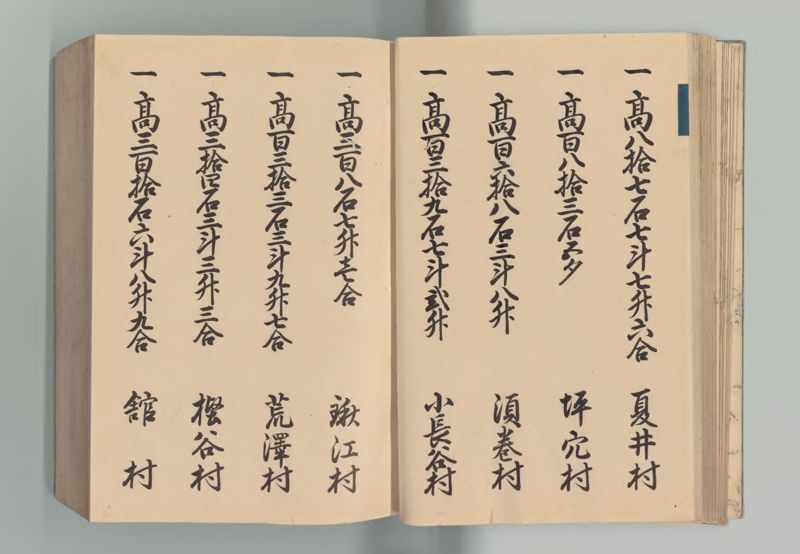 一 髙八拾七石七斗七升六合 夏井村
一 髙百八拾三石五夕 坪穴村
一 髙百六拾八石三斗八升 須巻村
一 髙百三拾九石七斗弐升 小長谷村
一 髙三百八石七升壱合 江村
一 髙百三拾三石三斗九升七合 荒澤村
一 髙三拾四石三斗三升三合 樫谷村
一 髙三百拾石六斗八升九合 舘村